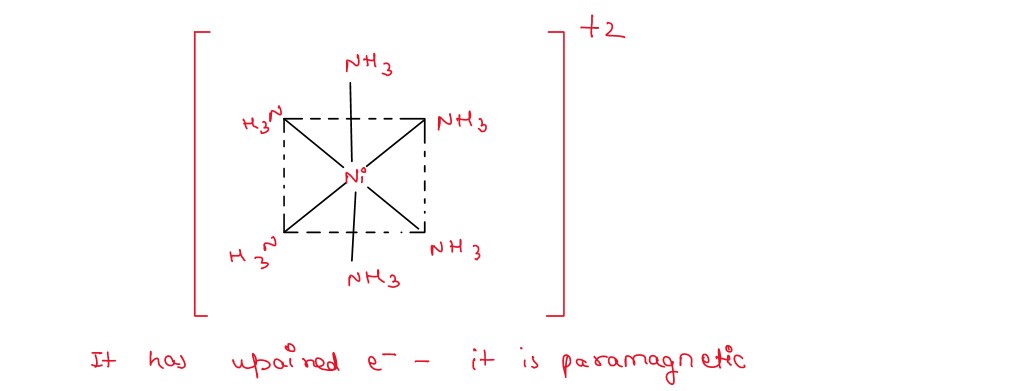 +2
NH3
H3N
NH3
Ni
H3N
NH3
NH3
It has upaired e- - it is paramagnetic